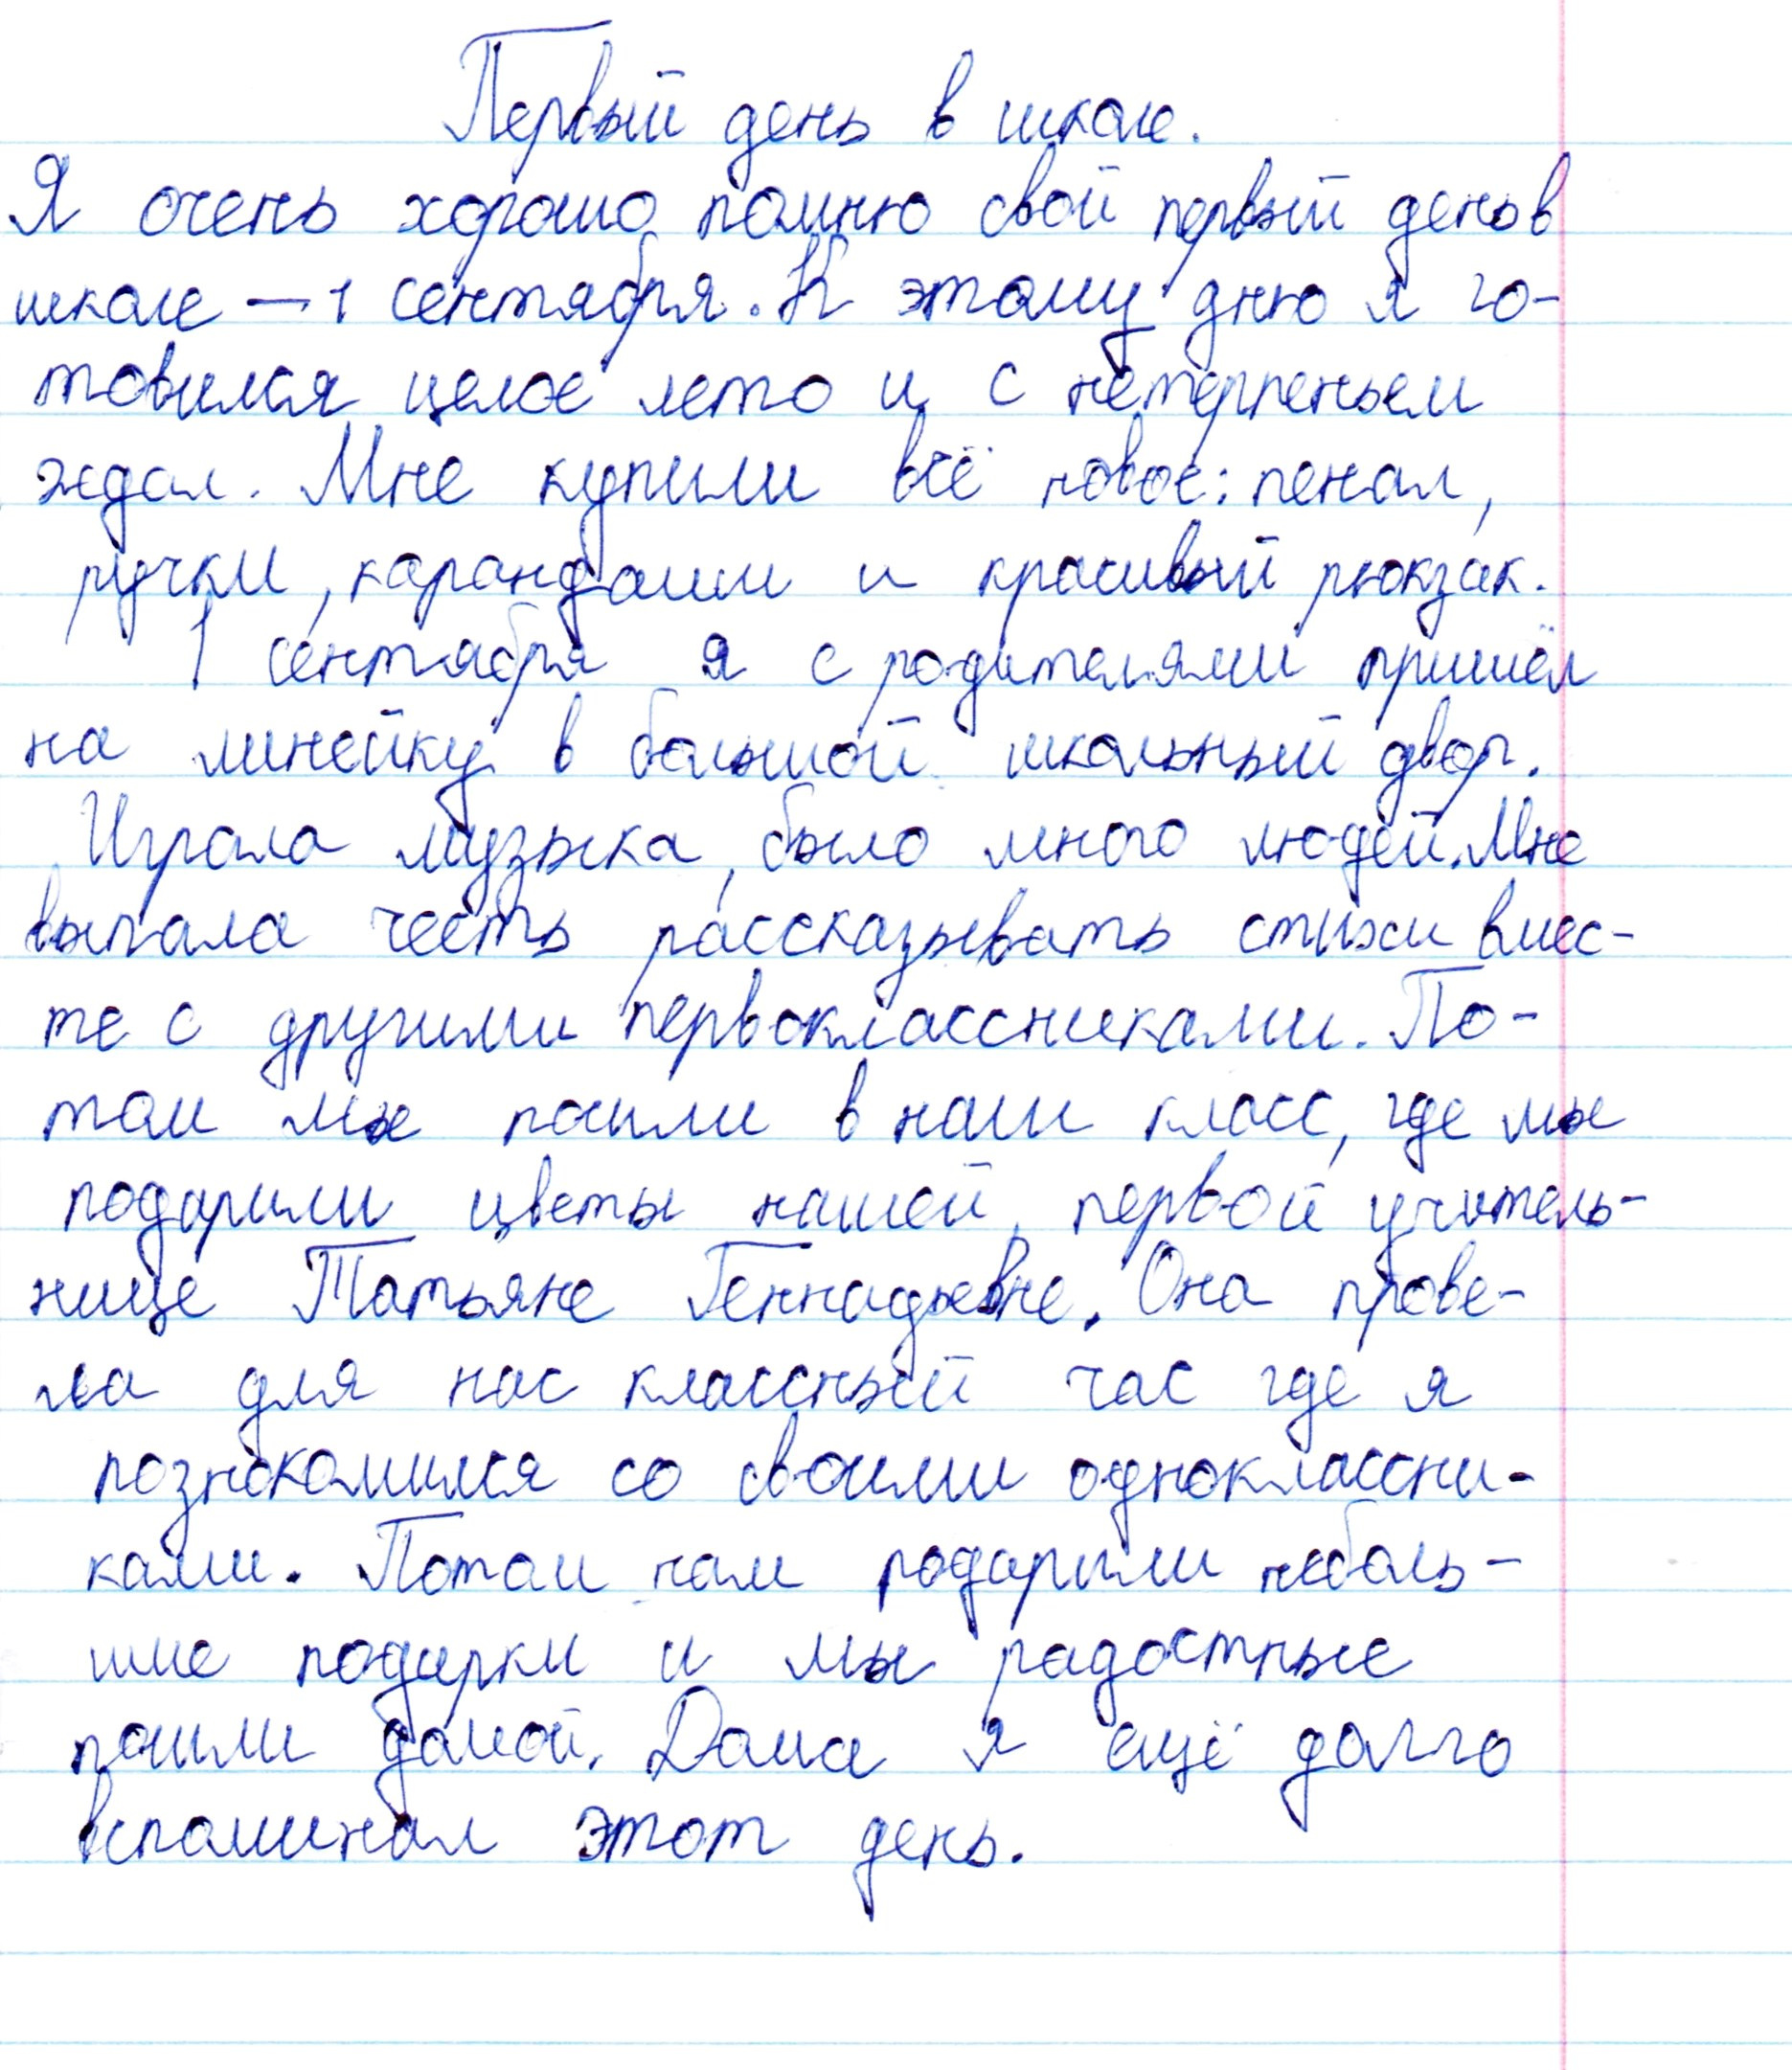 Первый день в школе.
Я очень хорошо помню свой первый день в
школе — 1 сентября. К этому дню я го-
товился целое лето и с нетерпеньем
ждал. Мне купили всё новое: пенал,
ручки, карандаши и красивый рюкзак.
1 сентября я с родителями пришёл
на линейку в большой школьный двор.
Играла музыка, было много людей. Мне
выпала честь рассказывать стихи вмес-
те с другими первоклассниками. По-
том мы пошли в наш класс, где мы
подарили цветы нашей первой учитель-
нице Татьяне Геннадьевне. Она прове-
ла для нас классный час где я
познакомился со своими одноклассни-
ками. Потом нам подарили неболь-
шие подарки и мы радостные
пошли домой. Дома я ещё долго
вспоминал этот день.